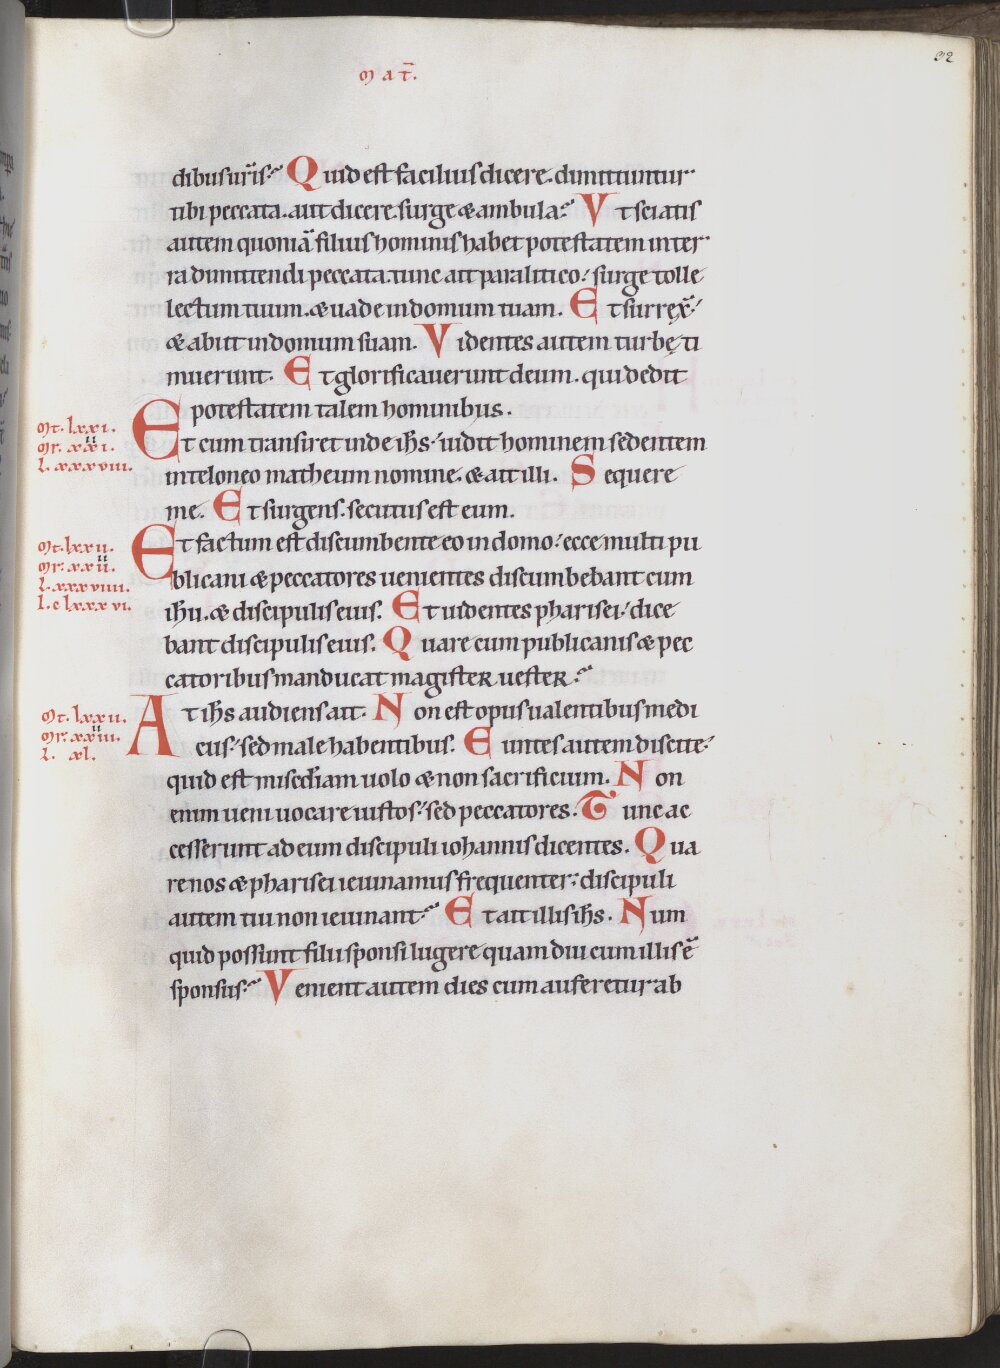 32
Mat̄.
dibus ur̄is? Quid est facilius dicere. dimittuntur
tibi peccata. aut dicere. surge & ambula? Vt sciatis
autem quoniā filius hominis habet potestatem in ter
ra dimittendi peccata. tunc ait paralitico: surge tolle
lectum tuum. & uade in domum tuam. Et surrex̄:
& abiit in domum suam. Videntes autem turbę ti
muerunt. Et glorificauerunt deum. qui dedit
potestatem talem hominibus.
Mt. lxxi.
Mr. xxi.
L. xxxviii.
Et cum transiret inde ih̄s: uidit hominem sedentem
in teloneo matheum nomine. & ait illi. Sequere
me. Et surgens. secutus est eum.
Mt. lxxii.
Mr. xxii.
L. xxxviiii.
L. c lxxxvi.
Et factum est discumbente eo in domo: ecce multi pu
blicani & peccatores uenientes discumbebant cum
ih̄u. & discipulis eius. Et uidentes pharisei: dice
bant discipulis eius. Quare cum publicanis & pec
catoribus manducat magister uester?
Mt. lxxii.
Mr. xxiii.
L. xl.
At ih̄s audiens ait. Non est opus ualentibus medi
cus: sed male habentibus. Euntes autem discite:
quid est misedīam uolo & non sacrificium. Non
enim ueni uocare iustos: sed peccatores. Tunc ac
cesserunt ad eum discipuli iohannis dicentes. Qua
re nos & pharisei ieiunamus frequenter: discipuli
autem tui non ieiunant? Et ait illis ih̄s. Num
quid possunt filii sponsi lugere quam diu cum illis ē
sponsus? Venient autem dies cum auferetur ab